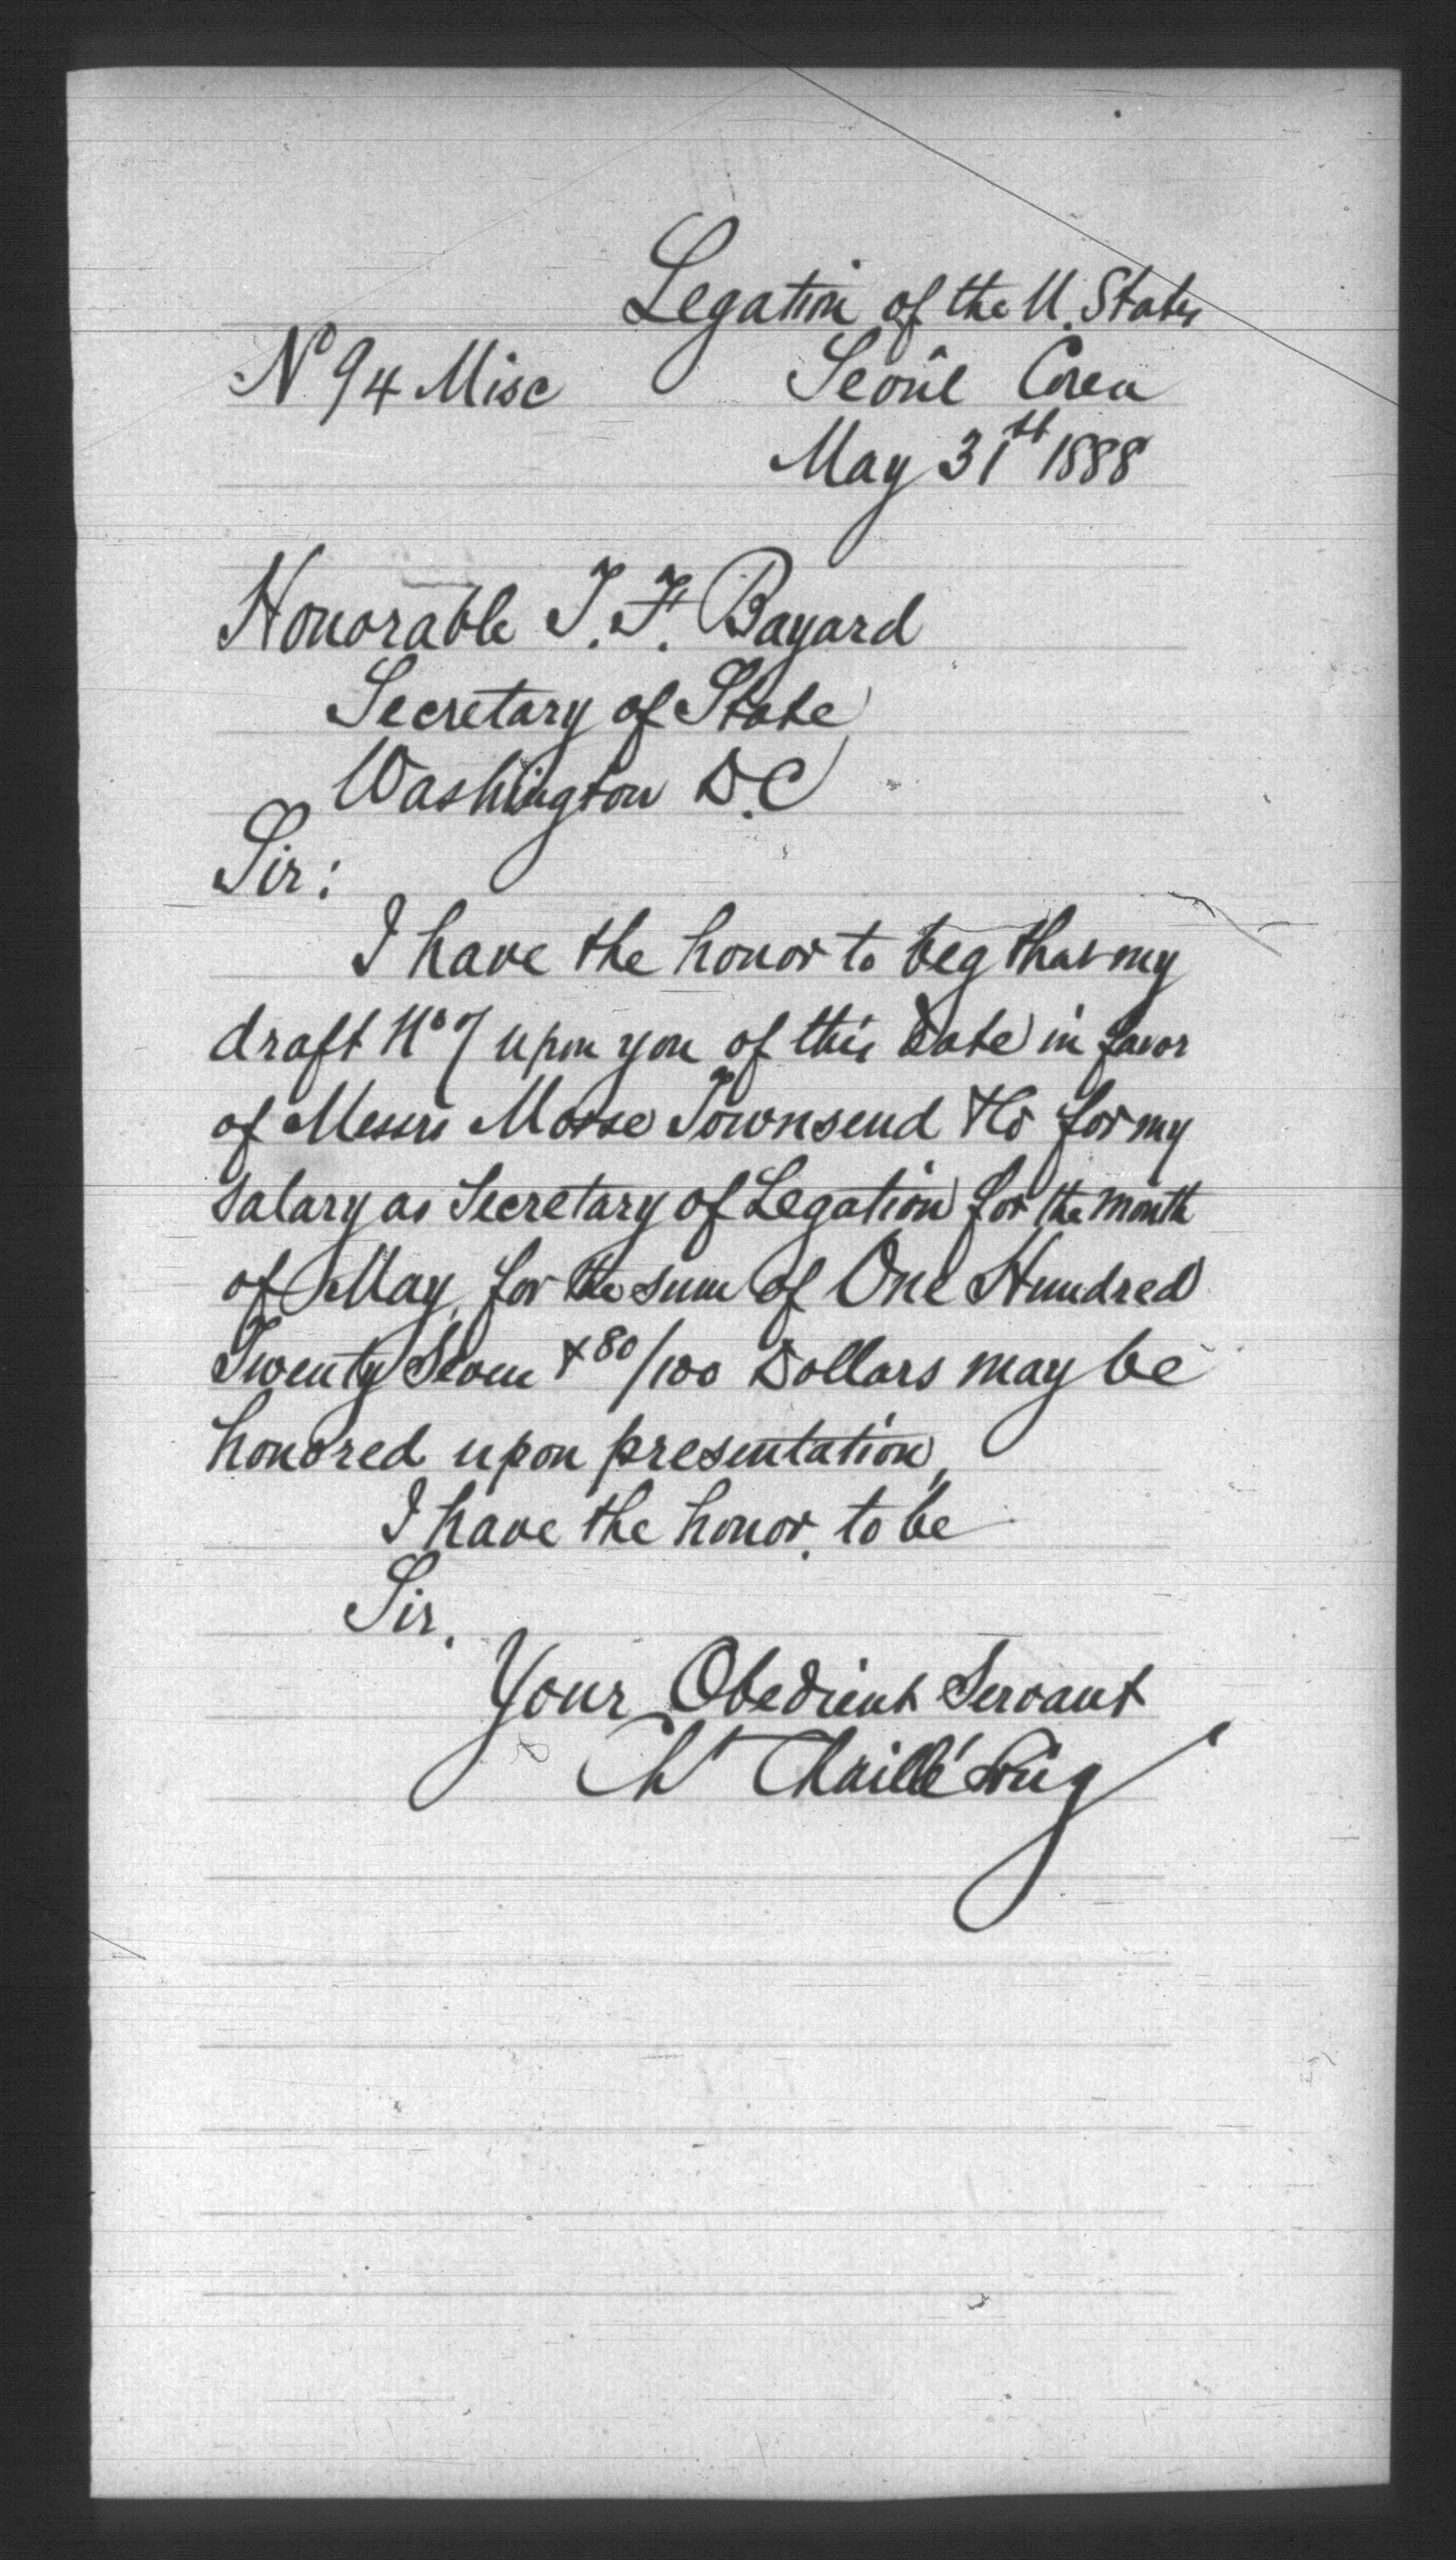 Legation of the U. States
Nº 94 Misc
Seoul Corea
May 31st 1888
Honorable T. F. Bayard
Secretary of State
Washington D.C
Sir:
I have the honor to beg that my
draft Nº 7 upon you of this date in favor
of Messrs Morse Townsend & Co for my
salary as Secretary of Legation for the month
of May, for the sum of One Hundred
Twenty Seven & 80/100 Dollars may be
honored upon presentation,
I have the honor, to be
Sir.
Your Obedient Servant
Ch Chaillé Long